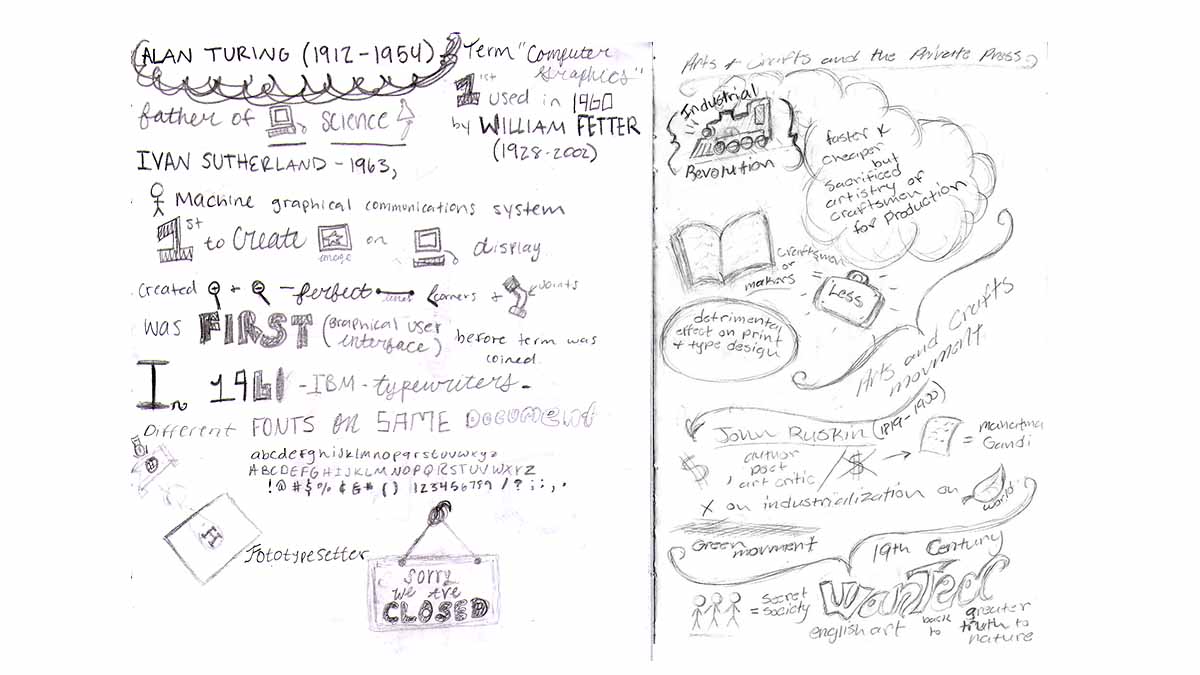 ALAN TURING (1912-1954)
father of science
IVAN SUTHERLAND - 1963,
Machine graphical communications system
1st to Create image on display
created + - perfect lines corners + joints
was FIRST (Graphical user interface) before term was coined
In 1961 - IBM - typewriters -
Different FONTS on SAME Document
abcdefghijklmnopqrstuvwxyz
ABCDEFGHIJKLMNOPQRSTUVWXYZ
!@#$%¢&*() 123456789 /?;:,.
H
Fototypesetter
sorry
we are
CLOSED
Term "Computer
Graphics"
1st used in 1960
by WILLIAM FETTER
(1928-2002)
Arts + Crafts and the Private Press
Industrial
Revolution
faster &
cheaper
but
sacrificed
artistry of
craftsmen
for Production
craftsmen
or
makers
= Less
detrimental
effect on print
+ type design
Arts and Crafts
movment
John Ruskin (1819-1900)
$, author
poet
art critic
$ → = mahatma
Gandi
X on industrialization on world
Green movment
19th Century
= secret
society
Wanted
english art back to greater
truth to
nature